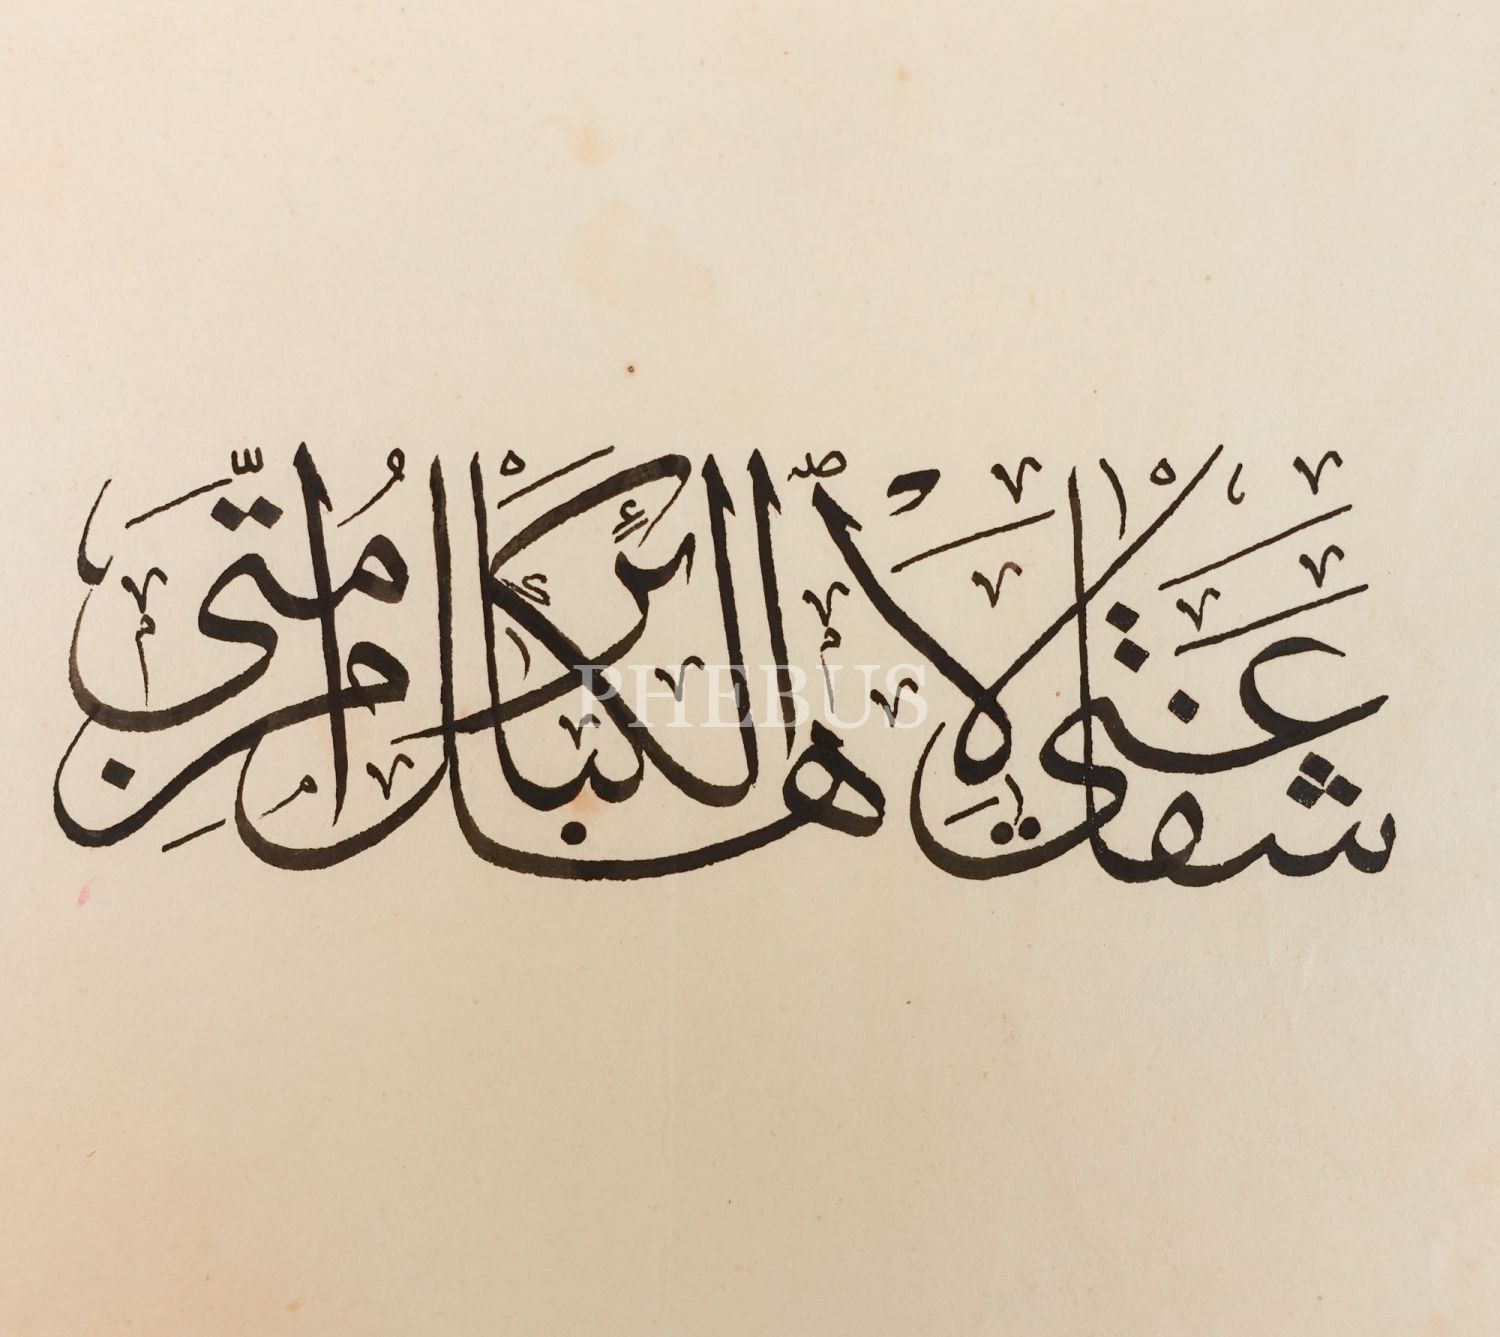 شَفَاعَتِي لِأَهْلِ الْكَبَائِرِ مِنْ أُمَّتِي
PHEBUS